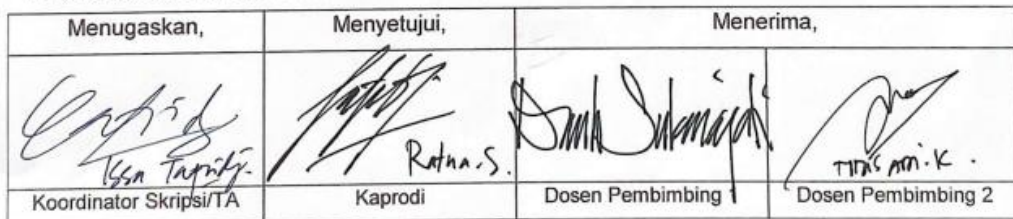 Menugaskan,
Menyetujui,
Menerima,
Issa
Ratna.S.
Koordinator Skripsi/TA
Kaprodi
Dosen Pembimbing 1
Dosen Pembimbing 2